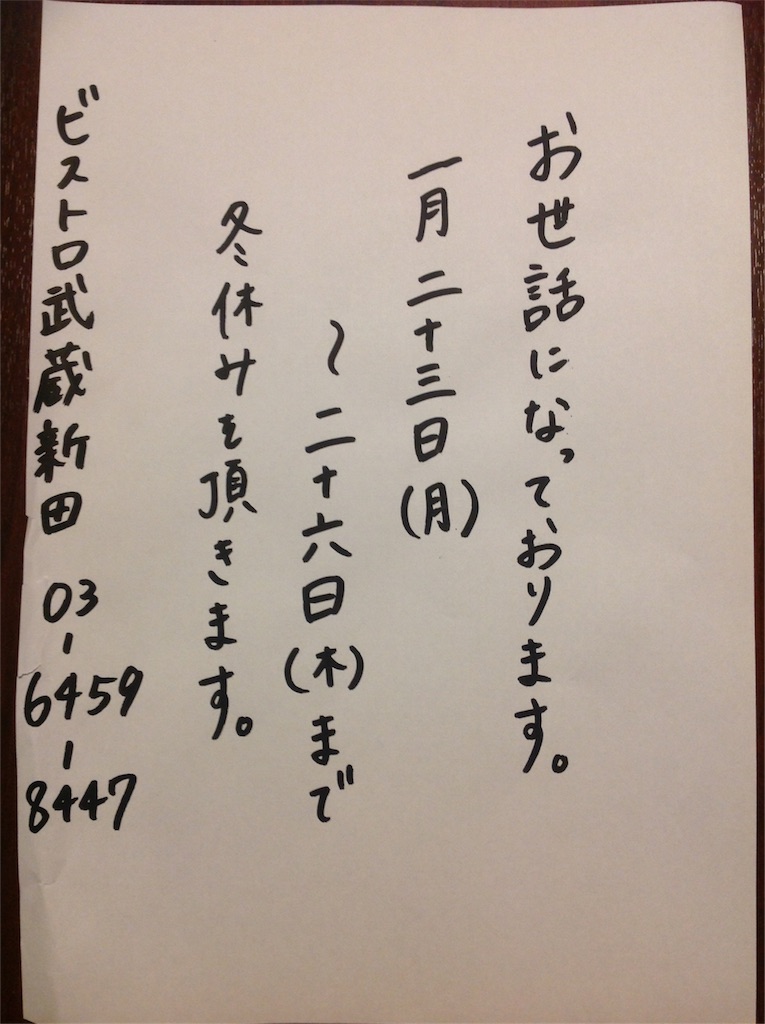 お世話になっております。
一月二十三日(月)
〜二十六日(木)まで
冬休みを頂きます。
ビストロ武蔵新田 03-6459-8447